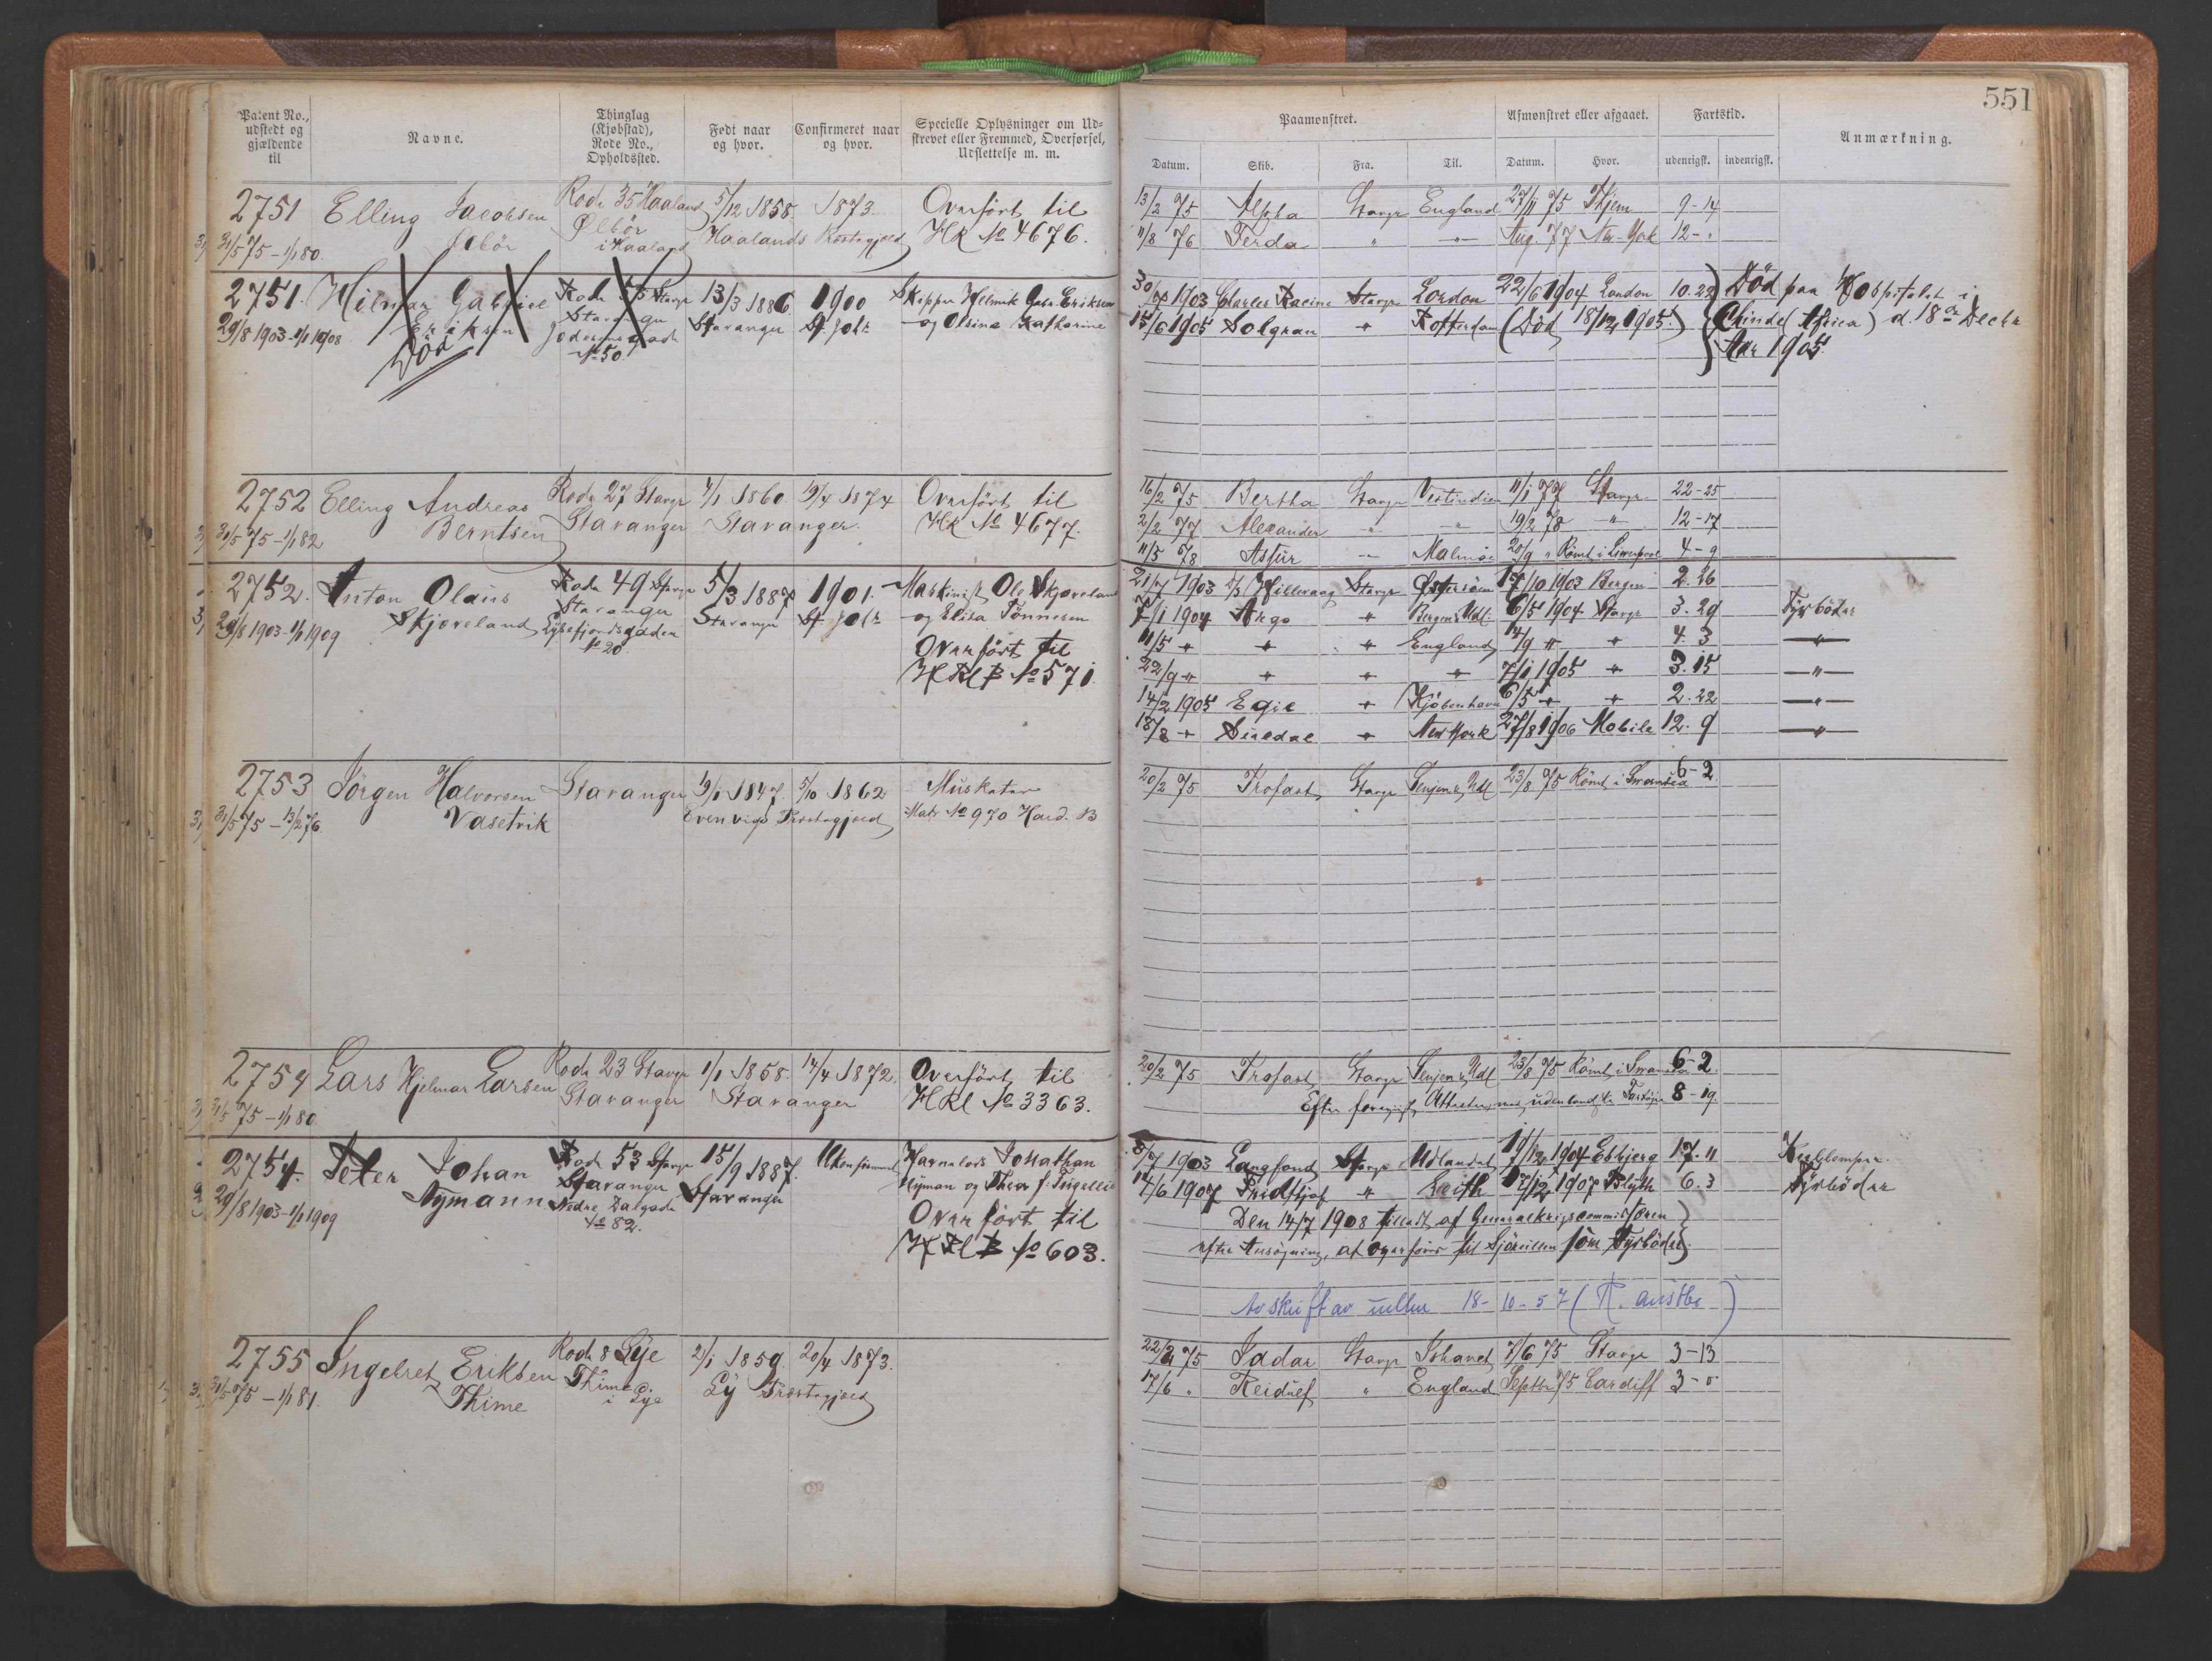 551
Patent No., udstedt og gjældende til
Navne.
Thinglag (Kjøbstad), Rode No., Opholdssted.
Fedt naar og hvor.
Confirmeret naar og hvor.
Specielle Oplysninger om Udskrevet eller Fremmed, Overførsel, Udslettelse m. m.
Paamønstret.
Afmønstret eller afgaaet.
Fartstid.
Anmærkning.
Datum. Skib. Fra. Til. Datum. Hvor. udenrigsk. indenrigsk.
2751 Elling Jacobsen Rode 35 Haaland 5/12 1858. 1873. Overført til
Ølbör Ølbör i Haaland Haalands Præstegjeld HR No 4676.
31/5 75 - 1/1 80.
13/2 75 Alpha Stavgr England 27/11 75 Thjem 9-14
11/8 76 Terda " Aug. 77 New-York 12-"
2751. Hilmar Gabriel Rode 55 Stavgr 13/3 1886 1900 Skipper Helmik Gabr. Eriksen
29/8 1903-1/1 1908 Eriksen Stavanger Stavanger St. Joh. og Olsine Katharine
Död No 50.
30/ 1903 Charles Racine Stavgr London 22/6 1904 London 10.22 Död paa Hospitalet i
15/6 1905 Solgran " Rotterdam (Död 18/12 1905.) Chinde (Africa) d. 18de Decbr
Aar 1905.
2752 Elling Andreas Rode 27 Stavgr 4/1 1860. 19/4 1874 Overført til
Berntsen Stavanger Stavanger. HR No 4677.
31/5 75 - 1/1 82
16/2 75 Bertha Stavgr Vestindien 11/1 77 Stavgr. 22-25
2/2 77 Alexander " " 19/2 78 " 12-17
11/5 78 Astür " Malmöe 20/9 " Römt i Liverpool 4-9
2752. Anton Olaus Rode 49 Stavgr 5/3 1887 1901. Maskinist Ole Skjoreland
29/8 1903-1/1 1909 Skjoreland Stavanger Stavanger St. Joh. og Elisa Tönnesen
Lysefjordsgaden No 20
Overført til
HRl B No 571.
21/7 1903 S/S Hilleraag Stavgr Østersöen 17/10 1903 Bergen 2.26
7/1 1904 Argo " Bergen & Udl. 6/5 1904 Stavgr 3.29 Fyrböder
11/5 " " " England 14/9 " " 4.3 "
22/9 " " " " 7/1 1905 " 3.15 "
14/2 1905 Egil " Kjöbenhavn 6/5 " " 2.22 "
18/8 " Siredal " New York 27/8 1906 Mobile 12.9 "
2753 Jörgen Halvorsen Stavanger 19/1 1847 5/10 1862 Musketer
Vasetvik Evenvigs Præstegjeld Matr No 970 Hard. B
31/5 75 - 13/2 76
20/2 75 Trofast Stavgr Tenjen & Udl 23/8 75 Römt i Swansea 6-2
2754 Lars Hjelmar Larsen Rode 23 Stavgr 1/1 1858. 14/4 1872. Overført til
31/5 75 - 1/1 80 Stavanger Stavanger HRl No 3363.
20/2 75 Trofast Stavgr Tenjen & Udl 23/8 75 Römt i Swansea 6-2
Efter forevist Attester med udenlandske Fartøier 8-19.
2754. Peter Johan Rode 53 Stavgr 15/9 1887. Ukonfirmeret Havnelods Jonathan
29/8 1903-1/1 1909 Nymann Stavanger Stavanger Nyman og Thea f. Ingellie
Nedre Dalgade No 82.
Overført til
HRl B No 603.
8/7 1903 Langfond Stavgr Udlandet 17/12 1904 Esbjerg 17.11 Kullemper.
14/6 1907 Fridtjof " Leith 17/12 1907 Blyth 6.3 Fyrböder
Den 14/7 1908 tilladt af Generalkrigscommissæren
efter Ansøgning, at overføres til Sjörullen som Fyrböder
Avskrift av rullen 18-10-57
2755 Ingebret Eriksen Rode 8 Lye 2/1 1859. 20/4 1873.
31/5 75 - 1/1 81. Thime Thime i Lye Ly Præstegjeld
22/2 75 Jadar Stavgr Ishavet 7/6 75 Stavgr 3-13
17/6 " Reidulf " England Septbr 75 Cardiff 3-"